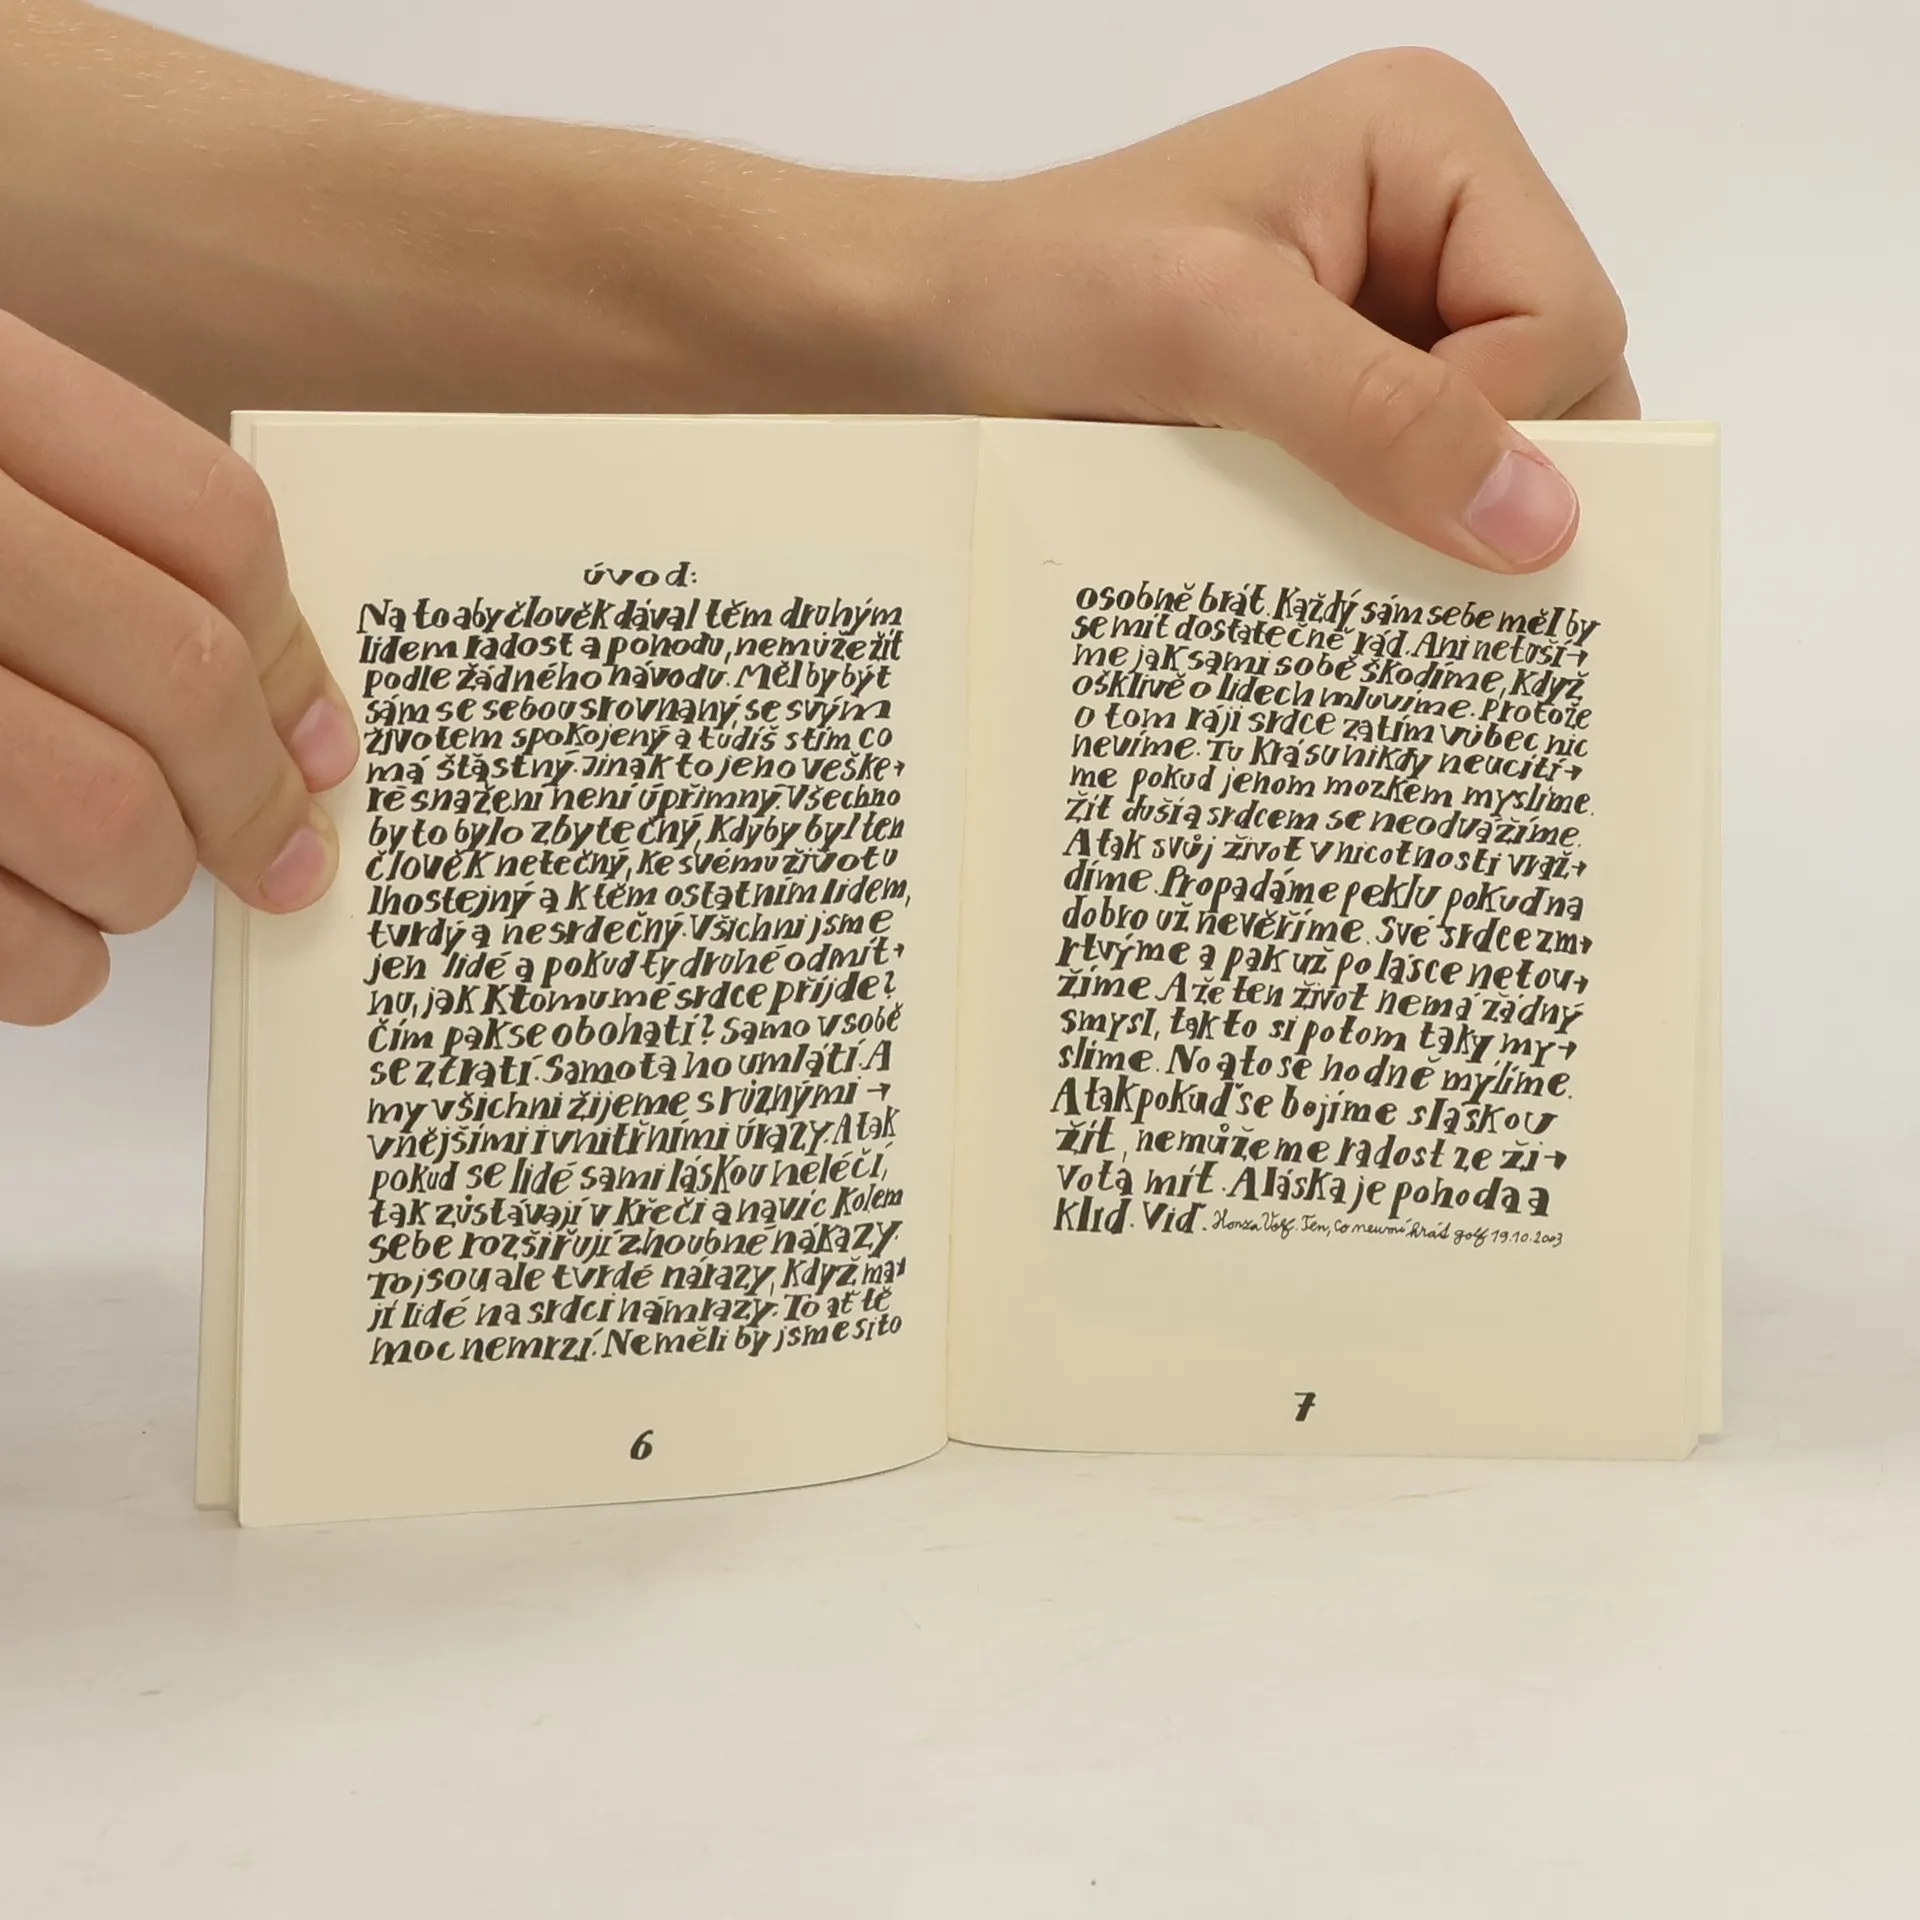 úvod:
Na to aby člověk dával těm druhým
lidem radost a pohodu, nemůže žít
podle žádného návodu. Měl by být
sám se sebou srovnaný, se svým
životem spokojený a tudíš s tím co
má šťastný. Jinak to jeho veške→
ré snažení není úpřimný. Všechno
by to bylo zbytečný, Kdyby byl ten
člověk netečný, ke svému životu
lhostejný a k těm ostatním lidem,
tvrdý a nesrdečný. Všichni jsme
jen lidé a pokud ty druhé odmít→
nu, jak k tomu mé srdce příjde?
Čím pak se obohatí? Samo v sobě
se ztratí. Samota ho umlátí. A
my všichni žijeme s různými →
vnějšími i vnitřními úrazy. A tak
pokud se lidé sami láskou neléčí,
tak zůstávají v křeči a navíc kolem
sebe rozšiřují zhoubné nákazy.
To jsou ale tvrdé nárazy, Když ma→
jí lidé na srdci námrazy. To ať tě
moc nemrzí. Neměli by jsme si to
6
osobně brát. Každý sám sebe měl by
se mít dostatečně rád. Ani netuší→
me jak sami sobě škodíme, Když
ošklivě o lidech mluvíme. Protože
o tom ráji srdce zatím vůbec nic
nevíme. Tu krásu nikdy neucítí→
me pokud jenom mozkem myslíme.
Žít duší a srdcem se neodvážíme.
A tak svůj život v nicotnosti vraž→
díme. Propadáme peklu pokud na
dobro už nevěříme. Své srdce zm→
rtvýme a pak už po lásce netou→
žíme. A že ten život nemá žádný
smysl, tak to si potom taky my→
slíme. No a to se hodně mýlíme.
A tak pokuď se bojíme s láskou
žít, nemůžeme radost ze ži→
vota mít. A láska je pohoda a
klid. Viď. Honza Volf. Ten, co neumí hrát golf 19.10.2003
7